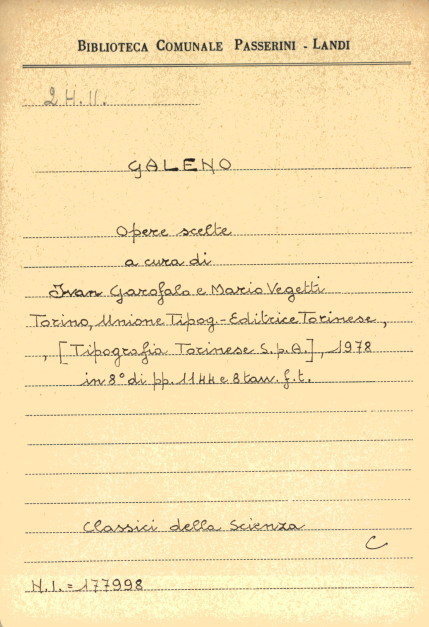 BIBLIOTECA COMUNALE PASSERINI - LANDI
2 H. II.
GALENO
Opere scelte
a cura di
Ivan Garofalo e Mario Vegetti
Torino, Unione Tipog.-Editrice Torinese,
, [Tipografia Torinese S.p.A.], 1978
in 8° di pp. 1144 e 8 tav. f.t.
Classici della Scienza
C
N.I. = 177998